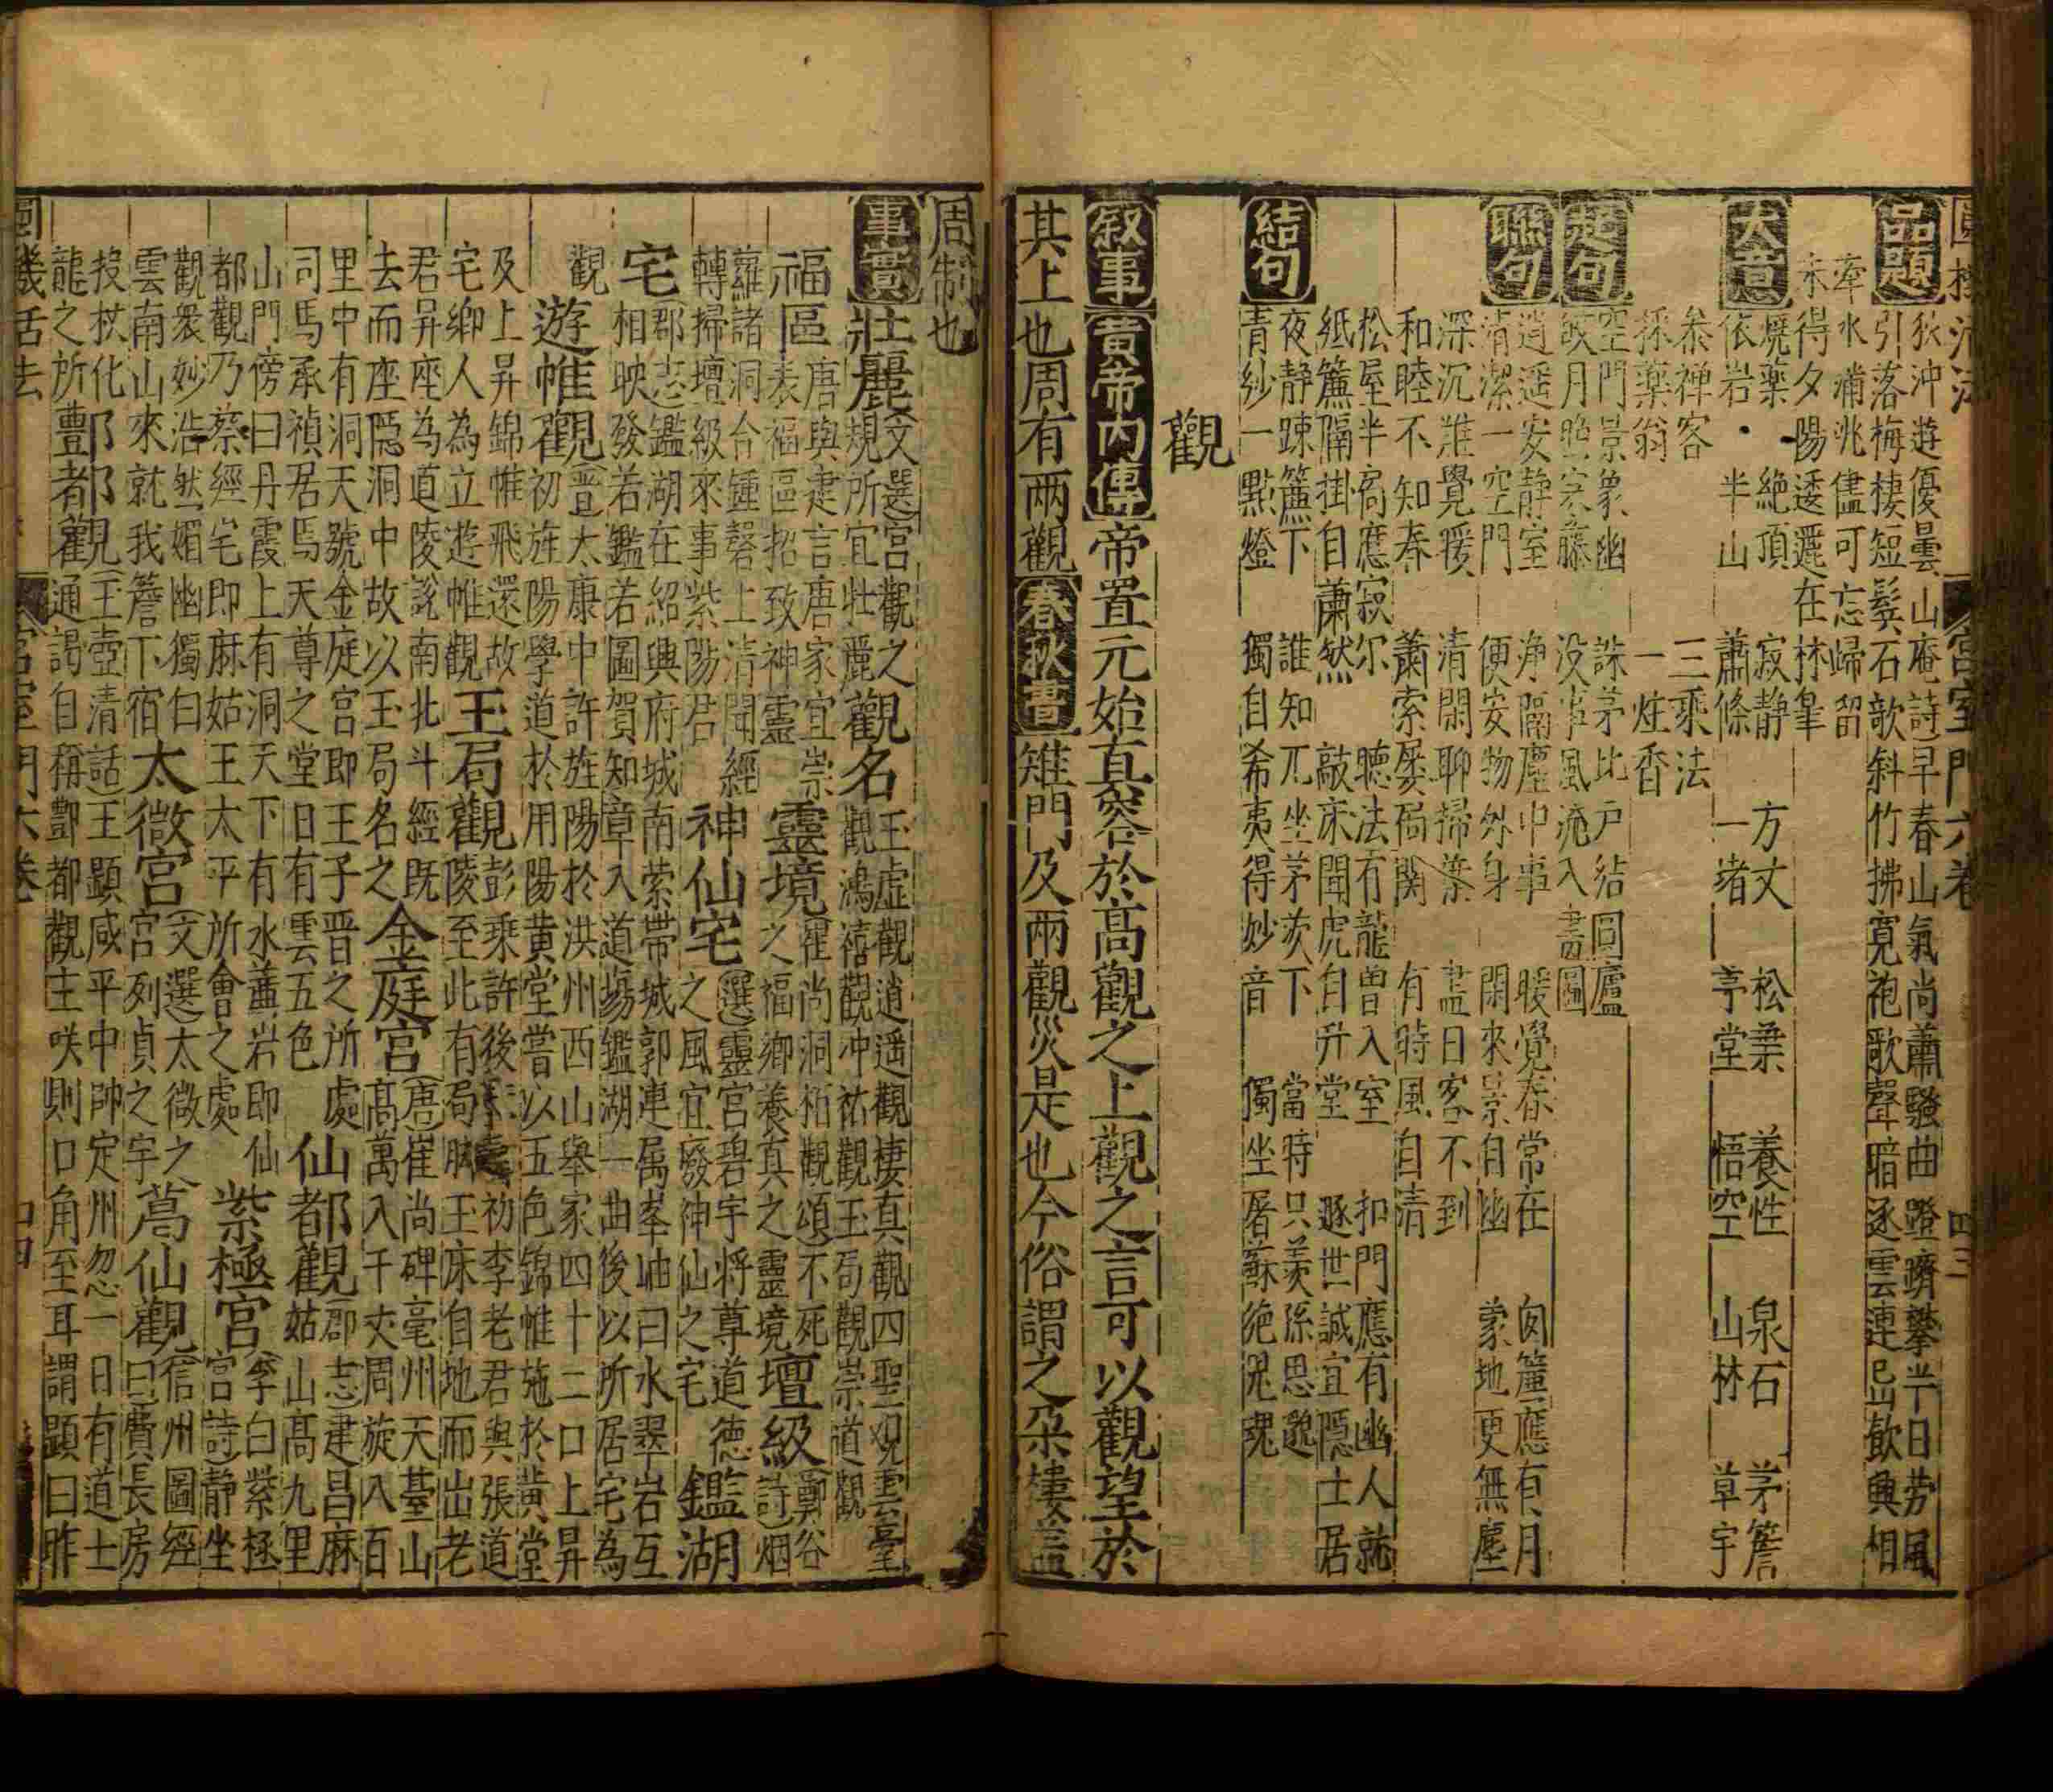 圓機活法 宮室門六卷 四三
品題 狄沖遊優曇山庵詩早春山氣尚蕭騷曲磴躋攀半日勞風
引落梅棲短鬢石欹斜竹拂寬袍歌聲暗逐雲連起飲興相
牽水滿洮儘可忘歸留
未得夕陽逶邐在林皐
大意 燒藥 絶頂 寂静 方丈 松業 養性 泉石 茅簷
依岩 半山 蕭條 一堵 亭堂 悟空 山林 草宇
叅禅客 三乘法
採藥翁 一炷香
起句 空門景象幽 誅茅比户結圓廬
皎月照寒藤 没事風流入畫圖
聯句 逍遥安静室 净隔塵中事 暖覺春常在 囱簾應有月
清潔一空門 便安物外身 閑來景自幽 蒙地更無塵
深沉難覺暖 清閑聊掃葉 盡日客不到
和睦不知春 蕭索屡扃関 有時風自清
松屋半窗應寂尔 聴法有龍曽入室 扣門應有幽人就
紙簾隔掛自蕭然 敲床聞虎自升堂 遯世誠宜隠士居
結句 夜静踈簾下 誰知兀坐茅茨下 當時只羡孫思邈
青紗一點燈 獨自希夷得妙音 獨坐屠蘇絶魂
觀
叙事 黄帝内傳 帝置元始真容於高觀之上觀之言可以觀望於
其上也周有兩觀 春秋書 雉門及兩觀災是也今俗謂之朶樓盖
周制也
事實 壯麗 文選宫觀之
規所宜壯麗 觀名 玉虚觀逍遥觀棲真觀四聖观雲臺
觀鴻禧觀冲祐觀玉局觀崇道觀
福區 唐與建言唐家宜崇
表福區招致神靈 靈境 崔尚洞栢觀頌不死
之福郷養真之靈境 壇級 鄭谷
詩烟
蘿諸洞合鍾磬上清聞經
轉掃壇級來事紫陽君 神仙宅 選靈宮碧宇将尊道德
之風宜廢神仙之宅 鑑湖
宅 郡志鑑湖在紹興府城南縈帯城郭連属峯岫曰水翠岩互
相映發若鑑若圖賀知章入道場鑑湖一曲後以所居宅為
觀 遊帷觀 晋太康中許旌陽於洪州西山舉家四十二口上昇
初旌陽學道於用陽黄堂嘗以五色錦帷施於黄堂
及上昇錦帷飛還故
宅郷人為立遊帷觀 玉局觀 彭乘許後初李老君與張道
陵至此有局脚玉床自地而出老
君昇座為道陵説南北斗經既
去而座隠洞中故以玉局名之 金庭宫 唐崔尚碑亳州天臺山
高萬入千夾周旋入百
里中有洞天號金庭宮即王子晋之所處
司馬承禎居焉天尊之堂日有雲五色 仙都觀 郡志建昌麻
姑山高九里
山門傍曰丹霞上有洞天下有水蓋岩即仙
都觀乃蔡經宅即麻姑王太平所會之處 紫極宮 李白紫極
宮詩静坐
觀衆妙浩然媚幽獨白
雲南山來就我簷下宿 太微宮 文選太微之
宫列貞之宇 葛仙觀 信州圖經
曰費長房
投杖化
龍之所 邯鄲觀 王壺清話王顕咸平中帥定州忽一日有道士
豊者觀 通謁自稱酆都觀主咲則口角至耳謂顕曰昨
圓機活法 宮室門六卷 四四